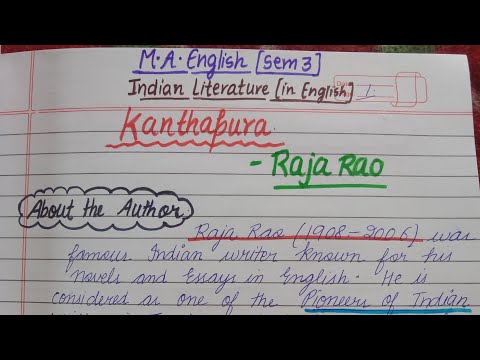 M.A. English [sem 3]
Indian Literature [in English]
1.
Kanthapura
- Raja Rao
About the Author
Raja Rao (1908-2006) was
famous Indian writer known for his
novels and Essays in English. He is
considered as one of the Pioneers of Indian